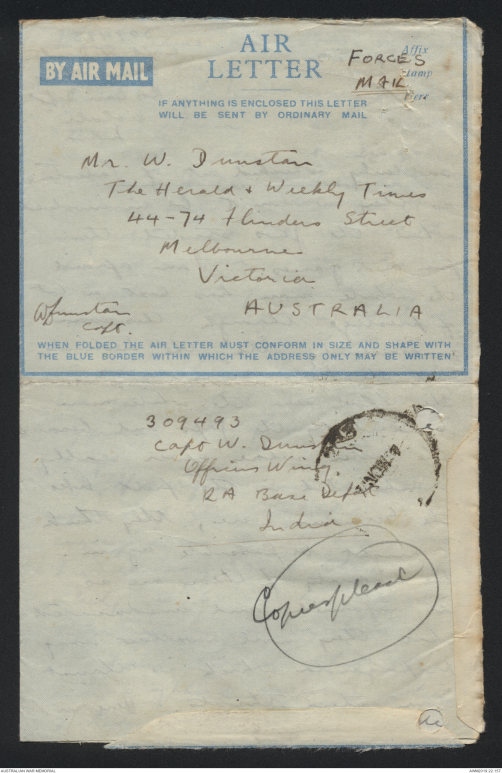 AIR
LETTER
BY AIR MAIL
FORCES
MAIL
Affix
Stamp
Here
IF ANYTHING IS ENCLOSED THIS LETTER
WILL BE SENT BY ORDINARY MAIL
Mr. W. Dunstan
The Herald & Weekly Times
44-74 Flinders Street
Melbourne
Victoria
AUSTRALIA
WDunstan
Capt.
WHEN FOLDED THE AIR LETTER MUST CONFORM IN SIZE AND SHAPE WITH
THE BLUE BORDER WITHIN WHICH THE ADDRESS ONLY MAY BE WRITTEN
309493
Capt W. Dunstan
Officers Wing.
RA Base Depot
India
Copies please
AUSTRALIAN WAR MEMORIAL